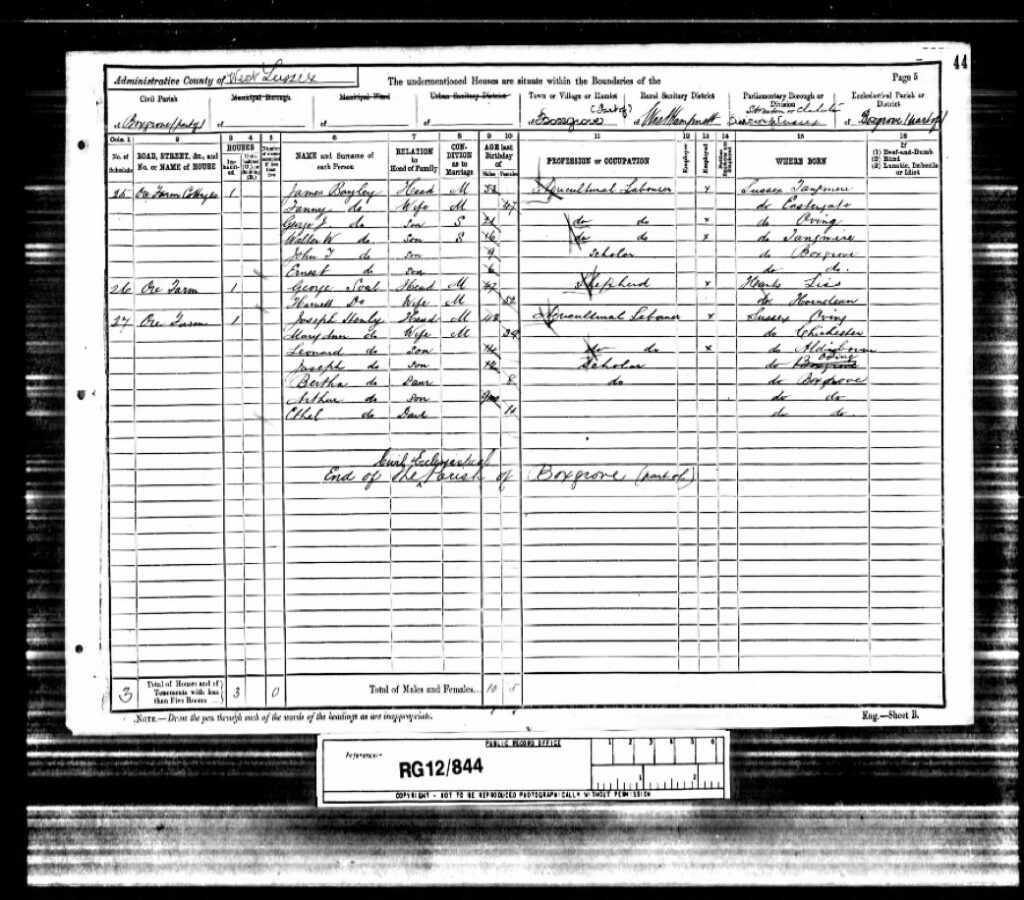 44
Page 5
Administrative County of West Sussex
The undermentioned Houses are situate within the Boundaries of the
Civil Parish Municipal Borough Municipal Ward Urban Sanitary District Town or Village or Hamlet Rural Sanitary District Parliamentary Borough or Division Ecclesiastical Parish or District
of Boxgrove (part of) of of of of Boxgrove (Part of) of Westhampnett of of Boxgrove (part of)
Cols. 1 2 3 4 5 6 7 8 9 10 11 12 13 14 15 16
No. of Schedule ROAD, STREET, &c., and No. or NAME of HOUSE HOUSES Inhabited NAME and Surname of each Person RELATION to Head of Family CONDITION as to Marriage AGE last Birthday of Males Females PROFESSION or OCCUPATION Employer Employed WHERE BORN If (1) Deaf-and-Dumb (2) Blind (3) Lunatic, Imbecile or Idiot
25 Ore Farm Cottages 1 James Bayley Head M 53 Agricultural Labourer x Sussex Tangmere
Fanny do Wife M 47 do Eastergate
George J do Son S 21 do do x do Oving
Walter W do Son S 16 do do x do Tangmere
John T do Son 9 Scholar do Boxgrove
Ernest do Son 6 do do.
26 Ore Farm 1 George Seal Head M 47 Shepherd x Hants Liss
Do Wife M 52 do Horndean
27 Ore Farm 1 Joseph Henly Head M 48 Agricultural Labourer x Sussex Oving
Mary Ann do Wife M 39 do Chichester
Leonard do Son 14 do do x do
Joseph do Son 12 Scholar do Oving
Bertha do Daur 8 do do Boxgrove
Arthur do Son do do
Ethel do Daur do do.
Civil & Ecclesiastical
End of the Parish of Boxgrove (part of)
3 Total of Houses and of Tenements with less than Five Rooms 3 0 Total of Males and Females... 10 8
NOTE.—Draw the pen through such of the words of the headings as are inappropriate.
Eng.—Sheet B.
PUBLIC RECORD OFFICE
1 2 3 4 5 6
Reference:-
RG12/844
1 2
COPYRIGHT - NOT TO BE REPRODUCED PHOTOGRAPHICALLY WITHOUT PERMISSION